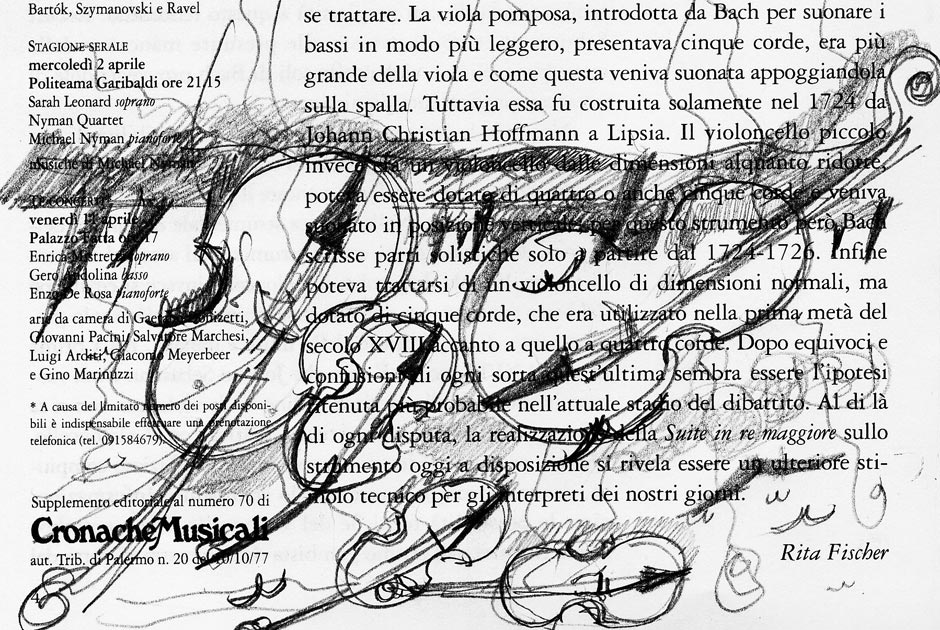 Bartók, Szymanovski e Ravel
STAGIONE SERALE
mercoledì 2 aprile
Politeama Garibaldi ore 21,15
Sarah Leonard soprano
Nyman Quartet
Michael Nyman pianoforte
musiche di Michael Nyman
venerdì 11 aprile
Palazzo Fatta ore 17
Enrica Mistretta soprano
Gero Giudolina basso
Enzo De Rosa pianoforte
arie da camera di Gaetano Donizetti,
Giovanni Pacini, Salvatore Marchesi,
Luigi Arditi, Giacomo Meyerbeer
e Gino Marinuzzi
* A causa del limitato numero dei posti disponi-
bili è indispensabile effettuare una prenotazione
telefonica (tel. 091584679).
Supplemento editoriale al numero 70 di
CronacheMusicali
aut. Trib. di Palermo n. 20 del 10/10/77
se trattare. La viola pomposa, introdotta da Bach per suonare i
bassi in modo più leggero, presentava cinque corde, era più
grande della viola e come questa veniva suonata appoggiandola
sulla spalla. Tuttavia essa fu costruita solamente nel 1724 da
Johann Christian Hoffmann a Lipsia. Il violoncello piccolo
invece da un violoncello dalle dimensioni alquanto ridotte,
poteva essere dotato di quattro o anche cinque corde e veniva
suonato in posizione verticale; per questo strumento però Bach
scrisse parti solistiche solo a partire dal 1724-1726. Infine
poteva trattarsi di un violoncello di dimensioni normali, ma
dotato di cinque corde, che era utilizzato nella prima metà del
secolo XVIII accanto a quello a quattro corde. Dopo equivoci e
confusioni di ogni sorta quest'ultima sembra essere l'ipotesi
ritenuta più probabile nell'attuale stadio del dibattito. Al di là
di ogni disputa, la realizzazione della Suite in re maggiore sullo
strumento oggi a disposizione si rivela essere un ulteriore sti-
molo tecnico per gli interpreti dei nostri giorni.
Rita Fischer